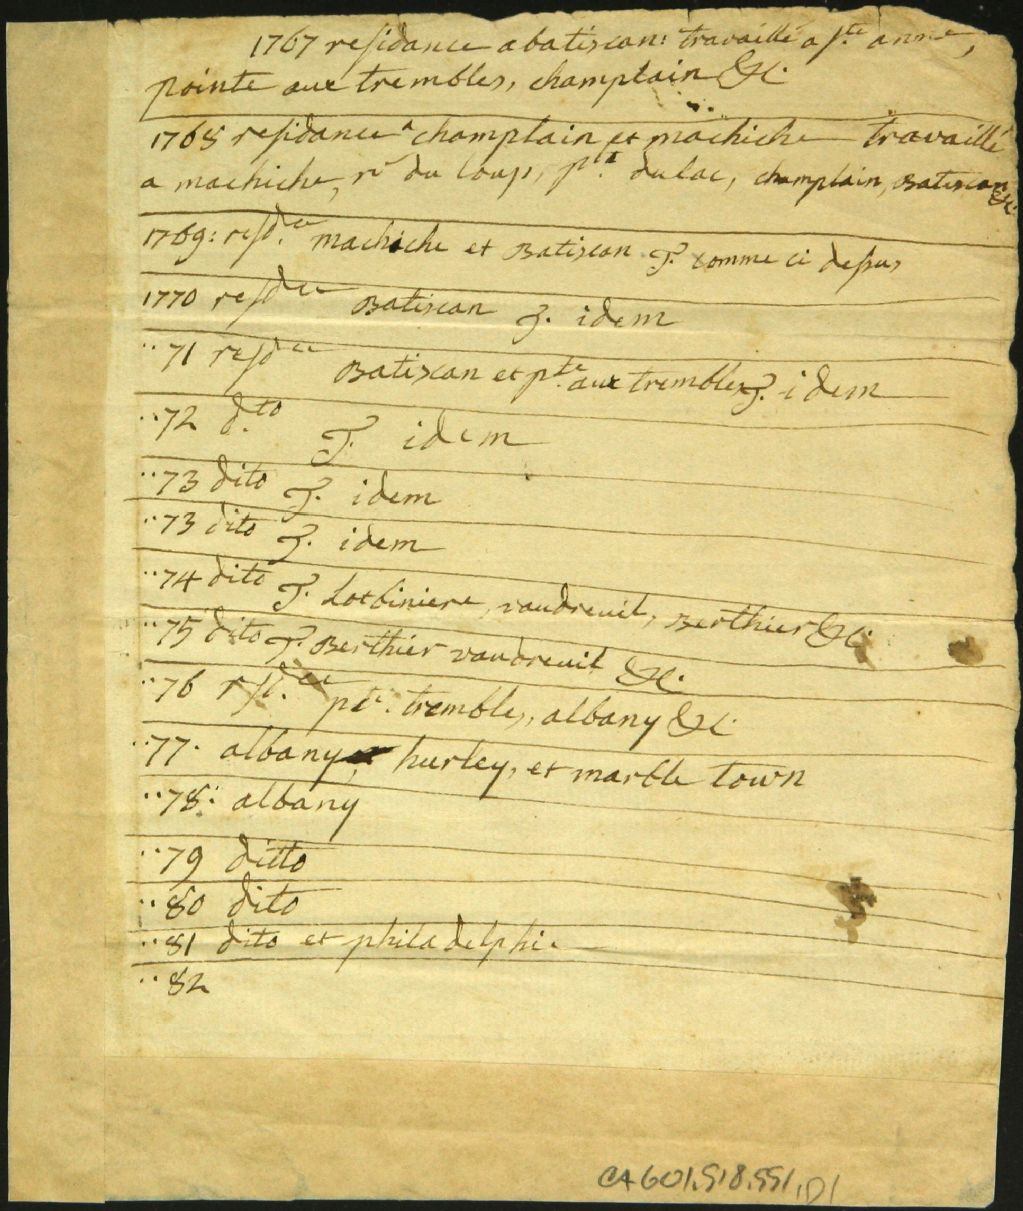 1767 residance a batiscan: travaille a ste anne,
pointe aux trembles, champlain &c.
1768 residance a champlain et machiche travaillé
a machiche, r. du loup, pte du lac, champlain, Batiscan &c.
1769: resdce machiche et Batiscan T. comme ci dessus
1770 resdce Batiscan T. idem
..71 resdce Batiscan et pte aux trembles T. idem
..72 d.to T. idem
..73 dito T. idem
..73 dito T. idem
..74 dito T. Lotbiniere, vaudreuil, Berthier &c.
..75 dito T. Berthier vaudreuil &c.
..76 resd.ce pte. trembles, albany &c.
..77. albany, hurley, et marble town
..78. albany
..79 ditto
..80 dito
..81 dito et philadelphie
..82
CA601,S18,SS1,D1